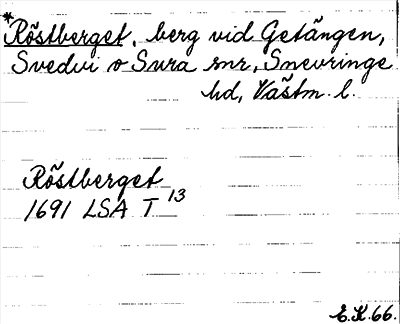 *Röstberget, berg vid Getängen,
Svedvi o Sura snr, Snevringe
hd, Västm. l.
Röstberget
1691 LSA T 13
E.K.66.